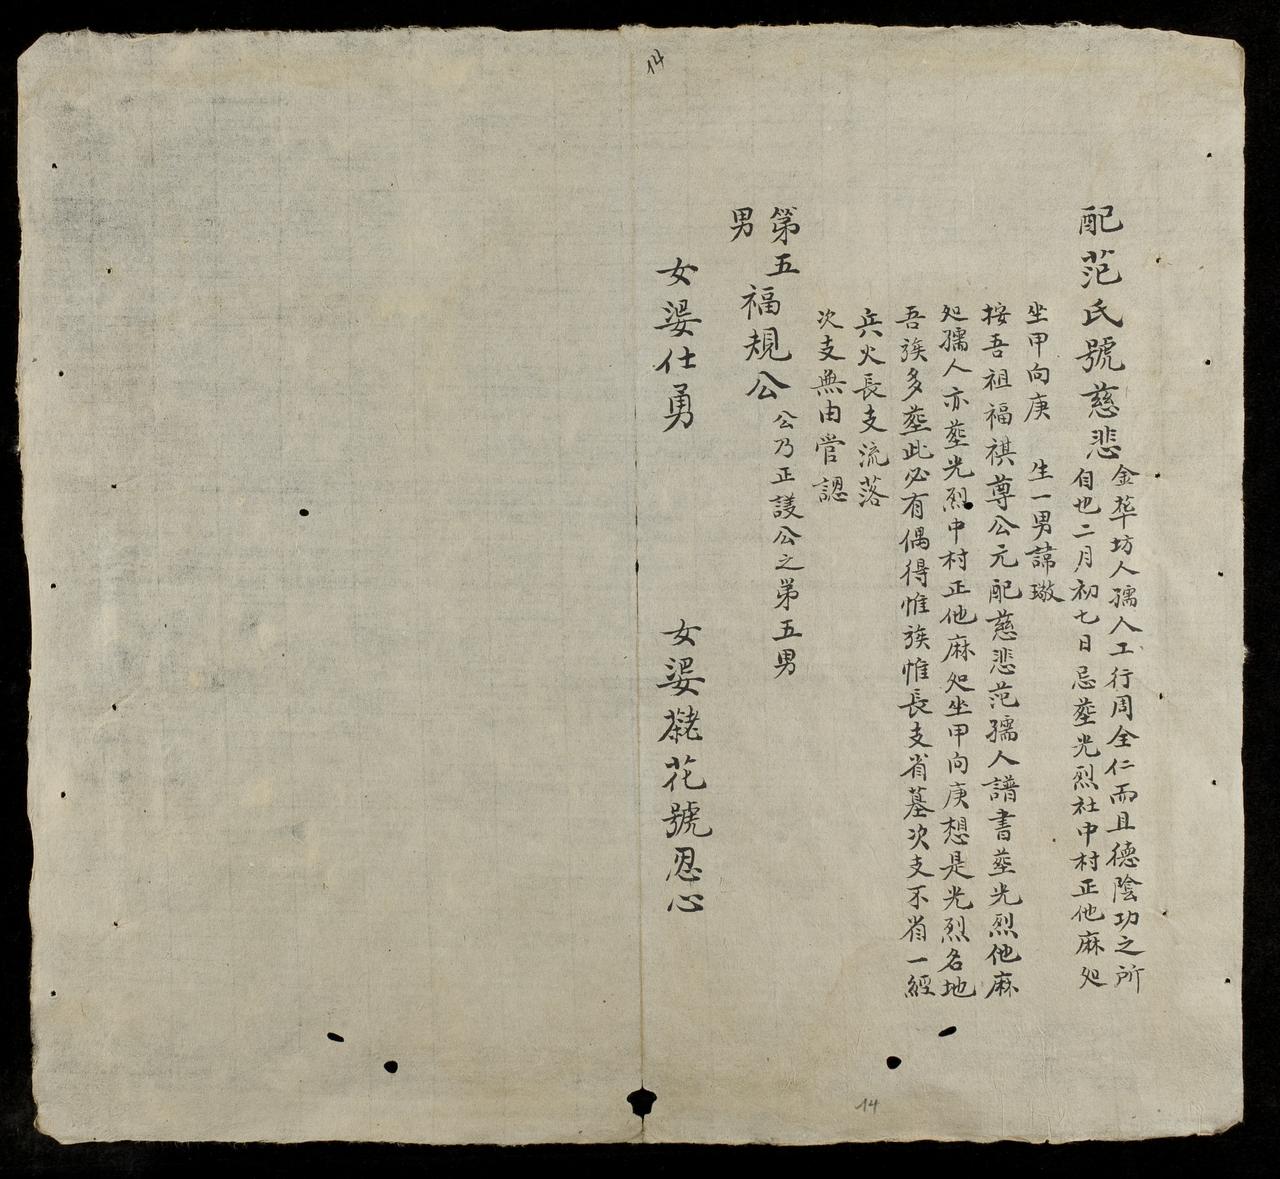 14
配范氏號慈悲
金華坊人孺人工行周全仁而且德陰功之所
自也二月初七日忌塟光烈社中村正他麻処
坐甲向庚 生一男諱璥
按吾祖福祺尊公元配慈悲范孺人譜書塟光烈他麻
処孺人亦塟光烈中村正他麻処坐甲向庚想是光烈名地
吾族多塟此必有偶得惟族惟長支省墓次支不省一經
兵火長支流落
次支無由管認
第五福規公
公乃正護公之第五男
男
女婆仕勇 女婆花號忍心
14